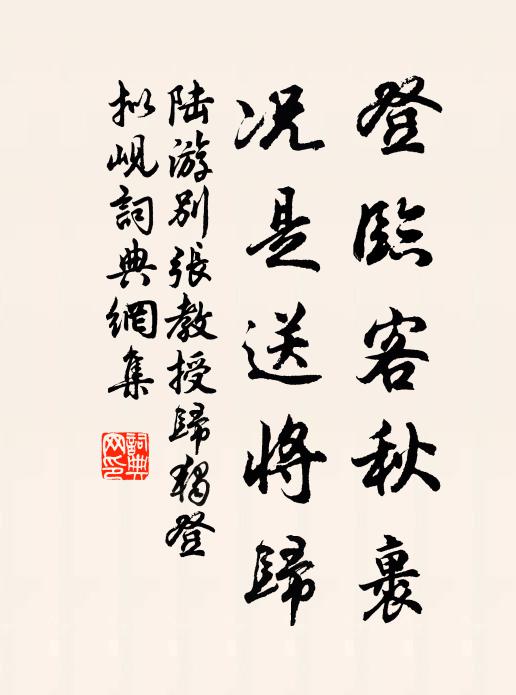 登臨客秋裏
況是送將歸
陸游別張教授歸獨登
拟峴詞典網集
詞典网印